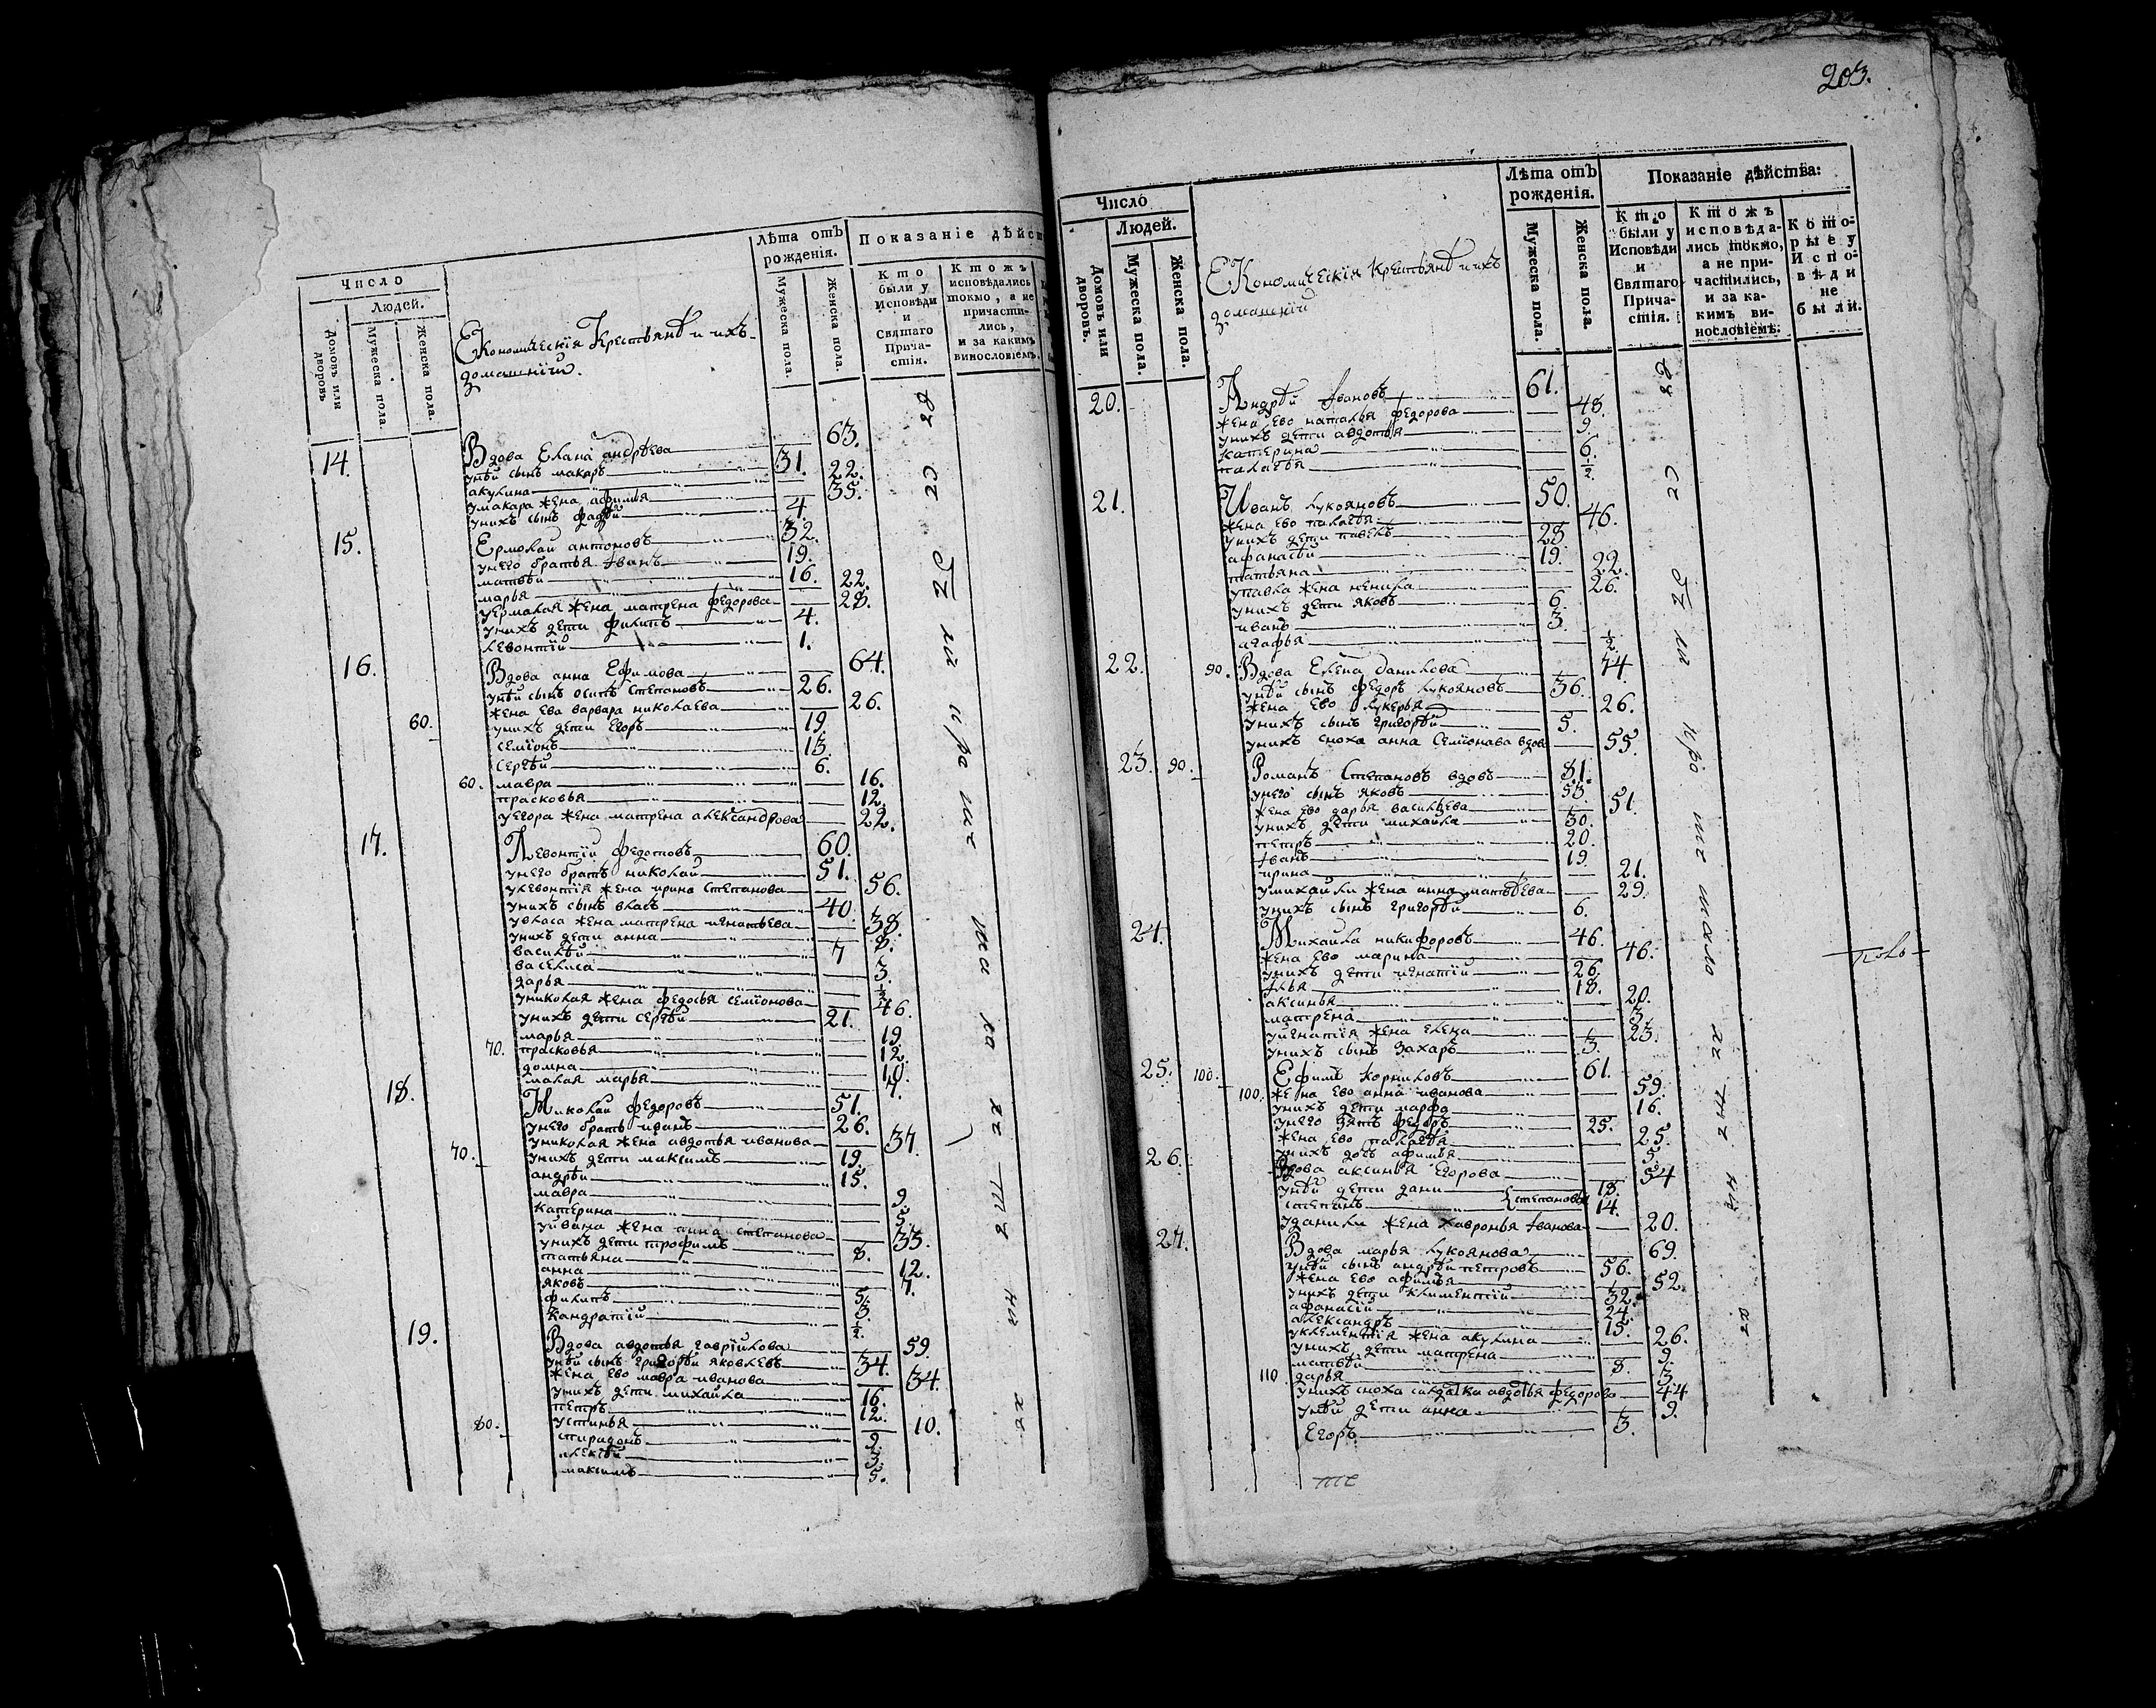 203.
Число
Людей.
Домовъ или дворовъ.
Мужеска пола.
Женска пола.
Экономическія Крестьянѣ и ихъ
домашніи.
Лѣта отъ рожденія.
Мужеска пола.
Женска пола.
Показаніе дѣйст
Кто были у Исповѣди и Святаго Причастія.
Ктожъ исповѣдались токмо, а не причастились, и за какимъ винословіемъ.
14. Вдова Елана андрѣева 63.
унѣй сынъ макаръ 31.
акулина 22.
умакара жена афимья 35.
унихъ сынъ фадѣй 4
15. Ермолай антоновъ 32.
унего братья Іванъ 19.
матвѣй 16.
марья 22.
уермалая жена матрена федорова 28.
унихъ дети филипъ 4.
левонтій 1.
16. Вдова анна Ефимова 64.
унѣй сынъ осипъ Степановъ 26.
жена Ева варвара николаева 26.
60. унихъ дети Егоръ 19.
семіонъ 13.
сергѣй 6.
60. мавра 16.
прасковья 12.
уегора жена матрена александрова 22.
17. Левонтій федотовъ 60.
унего братъ николай 51.
улевонтія жена ирина Степанова 56.
унихъ сынъ власъ 40.
увласа жена матрена игнатьева 38.
унихъ дети анна 8.
василѣй 7
василиса 3.
дарья 1/2
униколая жена федосья семіонова 46.
унихъ дети сергѣй 21.
марья 19.
70. прасковья 12.
домна 10.
малая марья 7.
18. Николай федоровъ 51.
унего братъ иванъ 26.
униколая жена авдотья иванова 37.
70. унихъ дети максимъ 19.
андрѣй 15.
мавра 9.
катерина 5.
уйвана жена анна степанова 35.
унихъ дети трофимъ 8.
татьяна 12.
анна 7.
яковъ 5.
филипъ 3.
кандратій 1/2.
19. Вдова авдотья гаврійлова 59.
унѣй сынъ григорѣй яковлевъ 34.
жена Ево мавра иванова 34.
унихъ дети михайла 16.
петръ 12.
80. устинья 10.
спиридонъ 9.
алексѣй 3.
максимъ 5.
Число
Людей.
Домовъ или дворовъ.
Мужеска пола.
Женска пола.
Экономическія Крестьянѣ и ихъ
домашніи
Лѣта отъ рожденія.
Мужеска пола.
Женска пола.
Показаніе дѣйства:
Кто были у Исповѣди и Святаго Причастія.
Ктожъ исповѣдались токмо, а не причастились, и за какимъ винословіемъ.
Которые у Исповѣди не были.
20. Андрѣй Івановъ 61.
жена Ево наталья федорова 48.
унихъ дети авдотья 9.
катерина 6.
палагѣя 1/2
21. Иванъ лукояновъ 50.
жена ево палагѣя 46.
унихъ дети павелъ 28
афанасѣй 19.
татьяна 22.
упавла жена ненила 26.
унихъ дети яковъ 6.
иванъ 3.
агафья 1/2
22. 90. Вдова Елена данилова 74.
унѣй сынъ федоръ лукояновъ 36.
жена Ево лукерья 26.
унихъ сынъ григорѣй 5.
унихъ сноха анна Семіонава вдова 55.
23. 90. Романъ Степановъ вдовъ 81.
унего сынъ яковъ 53.
жена ево дарья васильева 51.
унихъ дети михайла 30.
петръ 20.
Іванъ 19.
ирина 21.
умихайлы жена анна матвѣева 29.
унихъ сынъ григорѣй 6.
24. Михайла никифоровъ 46.
жена ево марина 46.
унихъ дети игнатій 26.
Ілья 18.
аксинья 20.
матрена 3.
уйгнатія жена елена 23.
унихъ сынъ Захаръ 3.
25. 100. Ефимъ корниловъ 61.
100. жена ево анна иванова 59.
унихъ дети марфа 16.
унего Зять федоръ 25.
жена ево палагѣя 25.
унихъ дочь афимья 5.
26. Вдова аксинья Егорова 54
унѣй дети дани 18.
степанъ степановы 14.
уданилы жена хавронья Іванова 20.
27. Вдова марья лукоянова 69.
унѣй сынъ андрѣй петровъ 56.
жена ево афимья 52
унихъ дети климентій 32.
афанасій 24.
александръ 15.
уклементія жена акулина 26.
унихъ дети матрена 9.
матвѣй 8.
110. дарья 3.
унихъ сноха салдатка авдотья федорова 44
унѣй дети анна 9.
Егоръ 3.